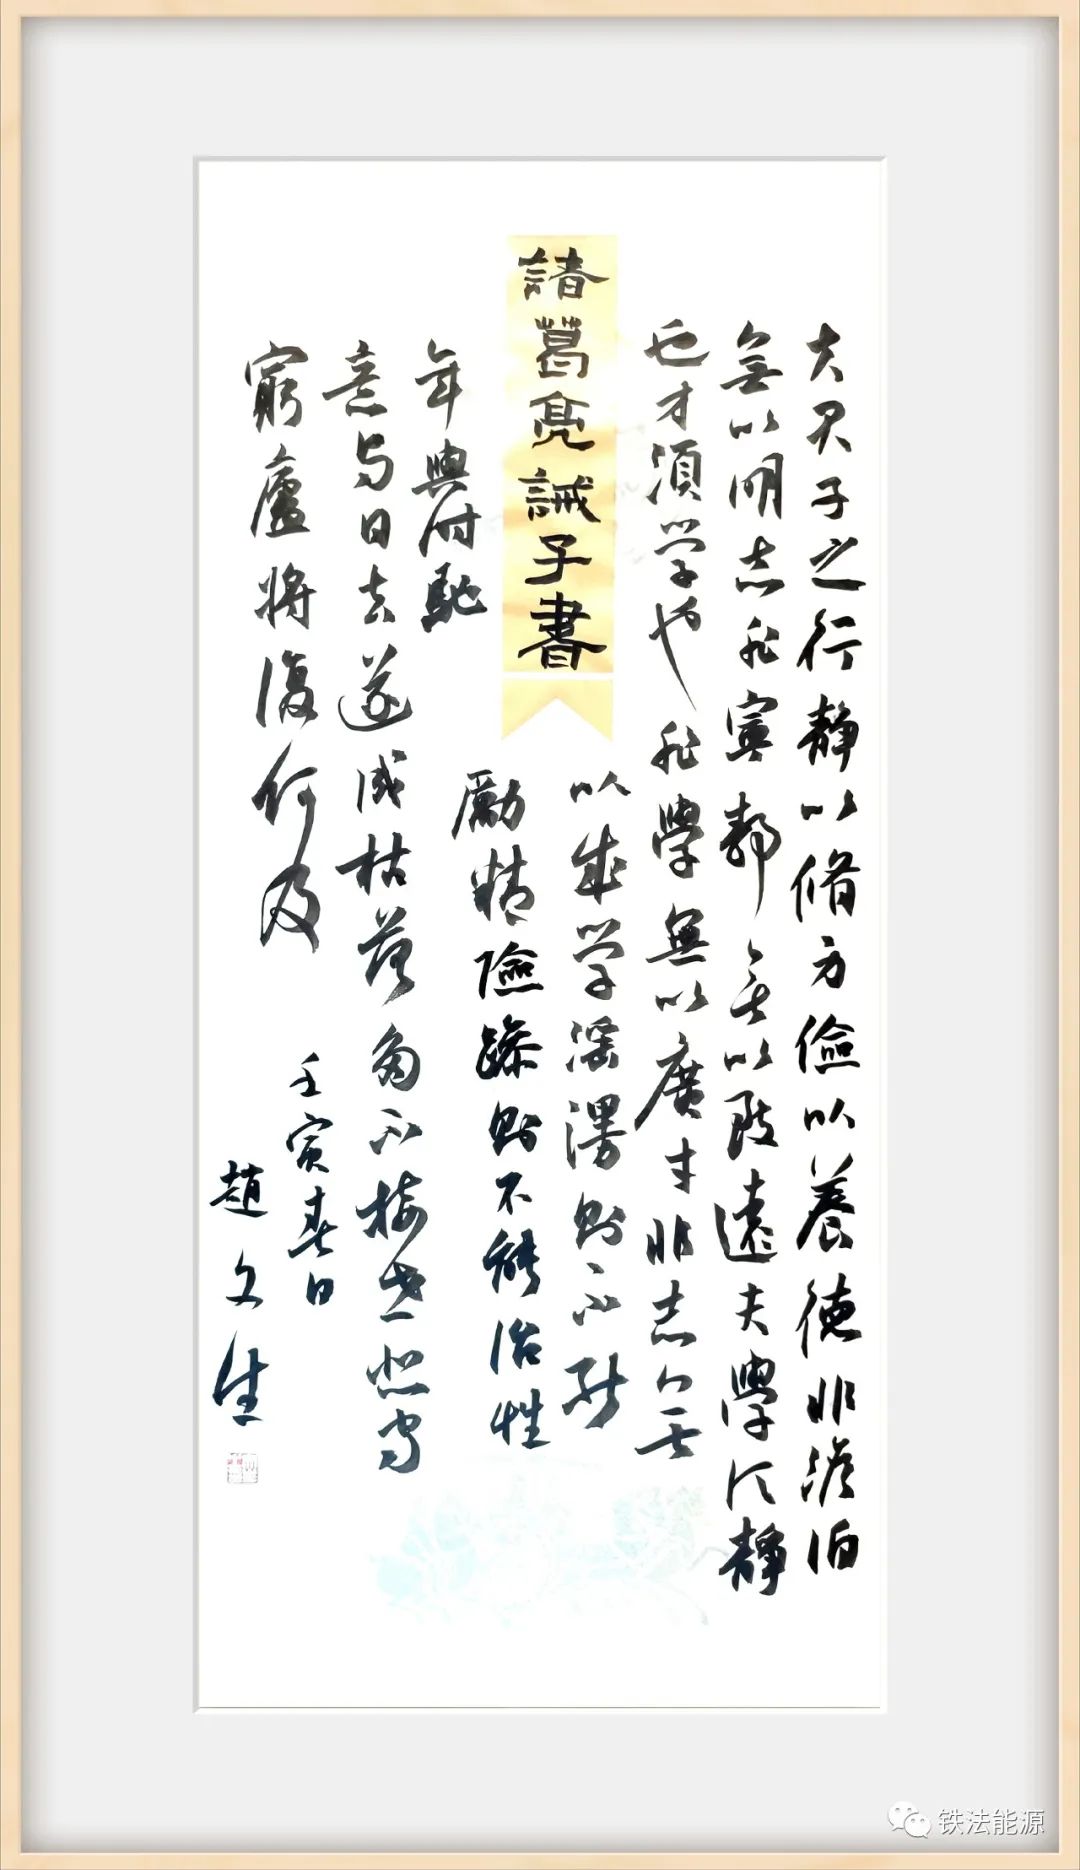 諸葛亮誡子書
夫君子之行靜以脩身儉以養德非澹泊
無以明志非寧靜無以致遠夫學須靜
也才須学也非學無以廣才非志無
以成学滛漫則不能
勵精險躁則不能治性
年與时馳
意与日去遂成枯落多不接世悲守
窮廬將復何及
壬寅春日
趙文生
铁法能源